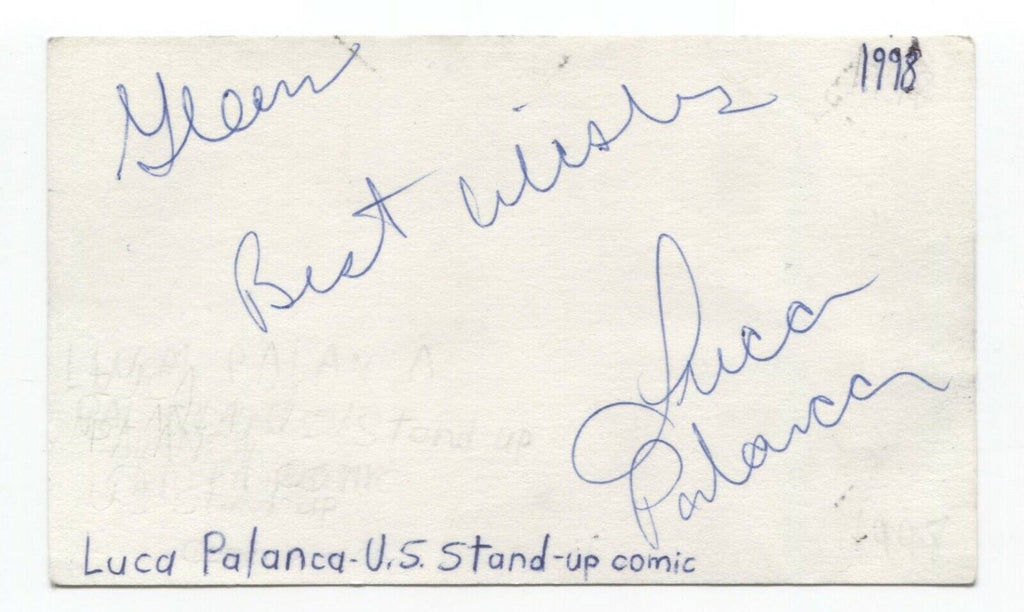 1998
Glenn
Best wishes
Luca
Palanca
Luca Palanca-U.S. Stand-up comic